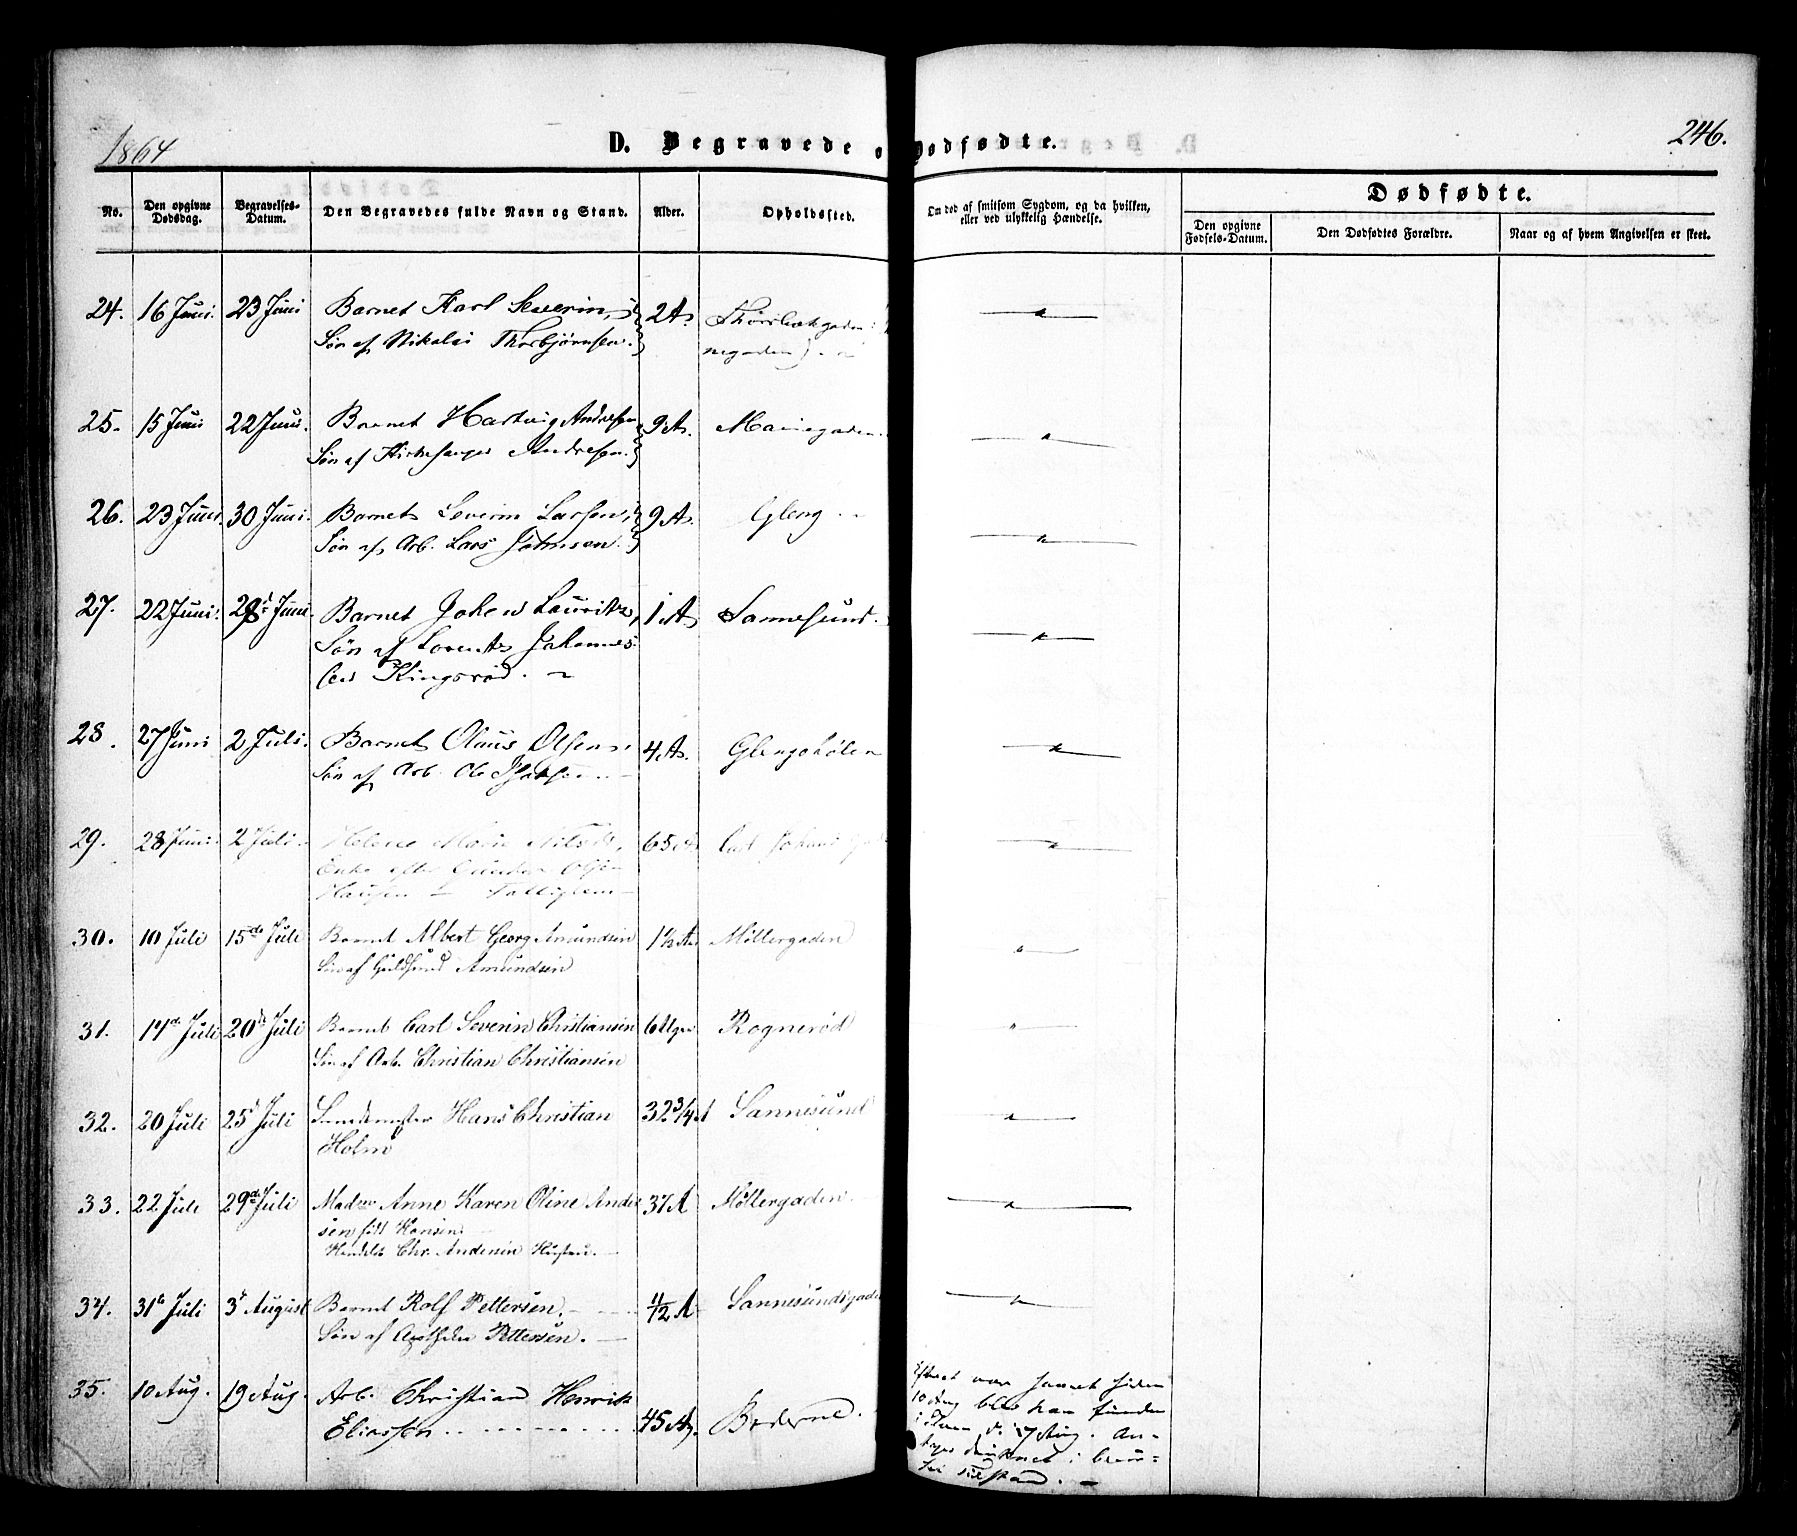 1864
D. Begravede o
Dødfødte.
246.
No.
Den opgivne Dødsdag.
Begravelses-Datum.
Den Begravedes fulde Navn og Stand.
Alder.
Opholdssted.
Om død af smitsom Sygdom, og da hvilken, eller ved ulykkelig Hændelse.
Dødfødte.
Den opgivne Fødsels-Datum.
Den Dødfødtes Forældre.
Naar og af hvem Angivelsen er skeet.
24. 16 Juni. 23 Juni Barnet Karl Severin, 2 A.
Søn af Nikolai Thorbjørnsen.
negaden).
25. 15 Juni 22 Juni Barnet Hartvig Andresen 9 A. Mariegaden.
Søn af Kirkesanger Andresen.
26. 23 Juni 30 Juni. Barnet Severin Larsen, 9 A. Gleng
Søn af Arb. Lars Johnsen.
27. 22 Juni. 28d Juni. Barnet Johan Lauritz, 1 A Sannesund.
Søn af Lorentz Johannes-
sen Kingsrød.
28. 27 Juni 2 Juli. Barnet Olaus Olsen, 4 A. Glengshølen
Søn af Arb. Ole
29. 28 Juni. 2 Juli. Helene Marie 65 A. Carl Johans
Enke efter Gunder Olsen
Hansen Fattiglem
30. 10 Juli 15de Juli Barnet Albert Georg Amundsen 1½ A Møllergaden
Søn af Amundsen
31. 14de Juli 20de Juli Barnet Carl Severin Christiansen 6 Uger Rognerød
Søn af Arb. Christian Christiansen
32. 20 Juli 25d Juli Hans Christian 32 3/4 A Sannesund
Holm
33. 22 Juli 29de Juli Mad. Anne Karen Oline Ander 37 A Møllergaden
sen født Hansen
Handelsb. Chr. Andersen Hustru.
34. 31te Juli 3d August Barnet Rolf Pettersen. 1/2 A Sannesundsgaden
Søn af Apotheker Pettersen.
35. 10 Aug. 19 Aug. Arb. Christian Henrik 45 A. Boderne.
Eliassen
Efteat være savnet siden
10 Aug blev han funden
i Elven d. 17 Aug. An-
tages druknet i beru-
set Tilstand.